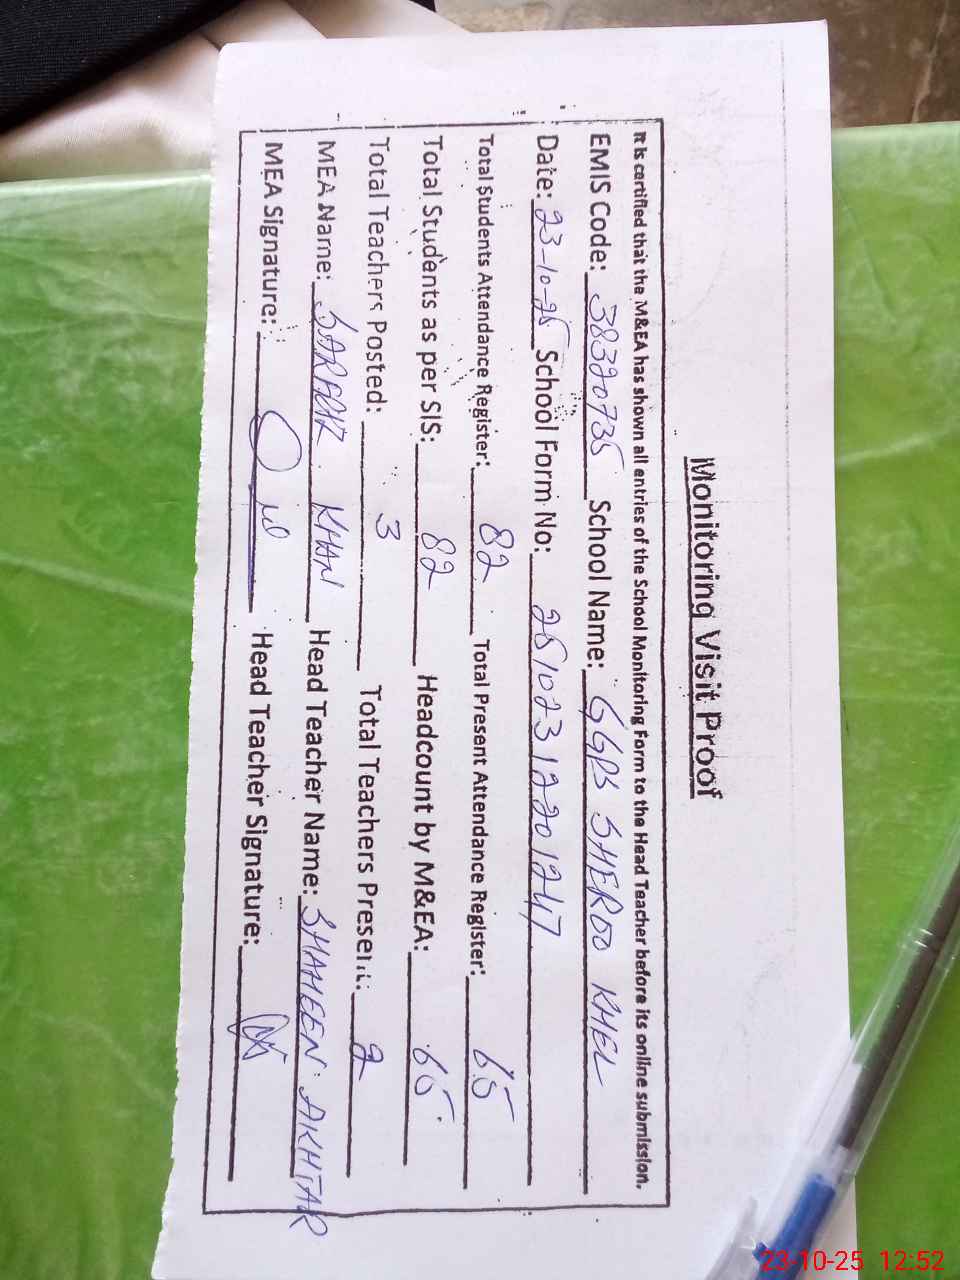 Monitoring Visit Proof
It is certified that the M&EA has shown all entries of the School Monitoring Form to the Head Teacher before its online submission.
EMIS Code: 38320735 School Name: GGPS SHEROO KHEL
Date: 23-10-25 School Form No: 251023122012417
Total Students Attendance Register: 82 Total Present Attendance Register: 65
Total Students as per SIS: 82 Headcount by M&EA: 65
Total Teachers Posted: 3 Total Teachers Present: 2
MEA Name: SARFRAZ KHAN Head Teacher Name: SHAHEEN AKHTAR
MEA Signature: Head Teacher Signature:
23-10-25 12:52